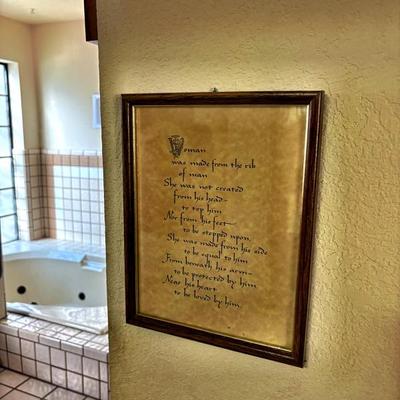 Woman
was made from the rib
of man
She was not created
from his head—
to top him
Nor from his feet—
to be stepped upon
She was made from his side
to be equal to him
From beneath his arm—
to be protected by him
Near his heart
to be loved by him.